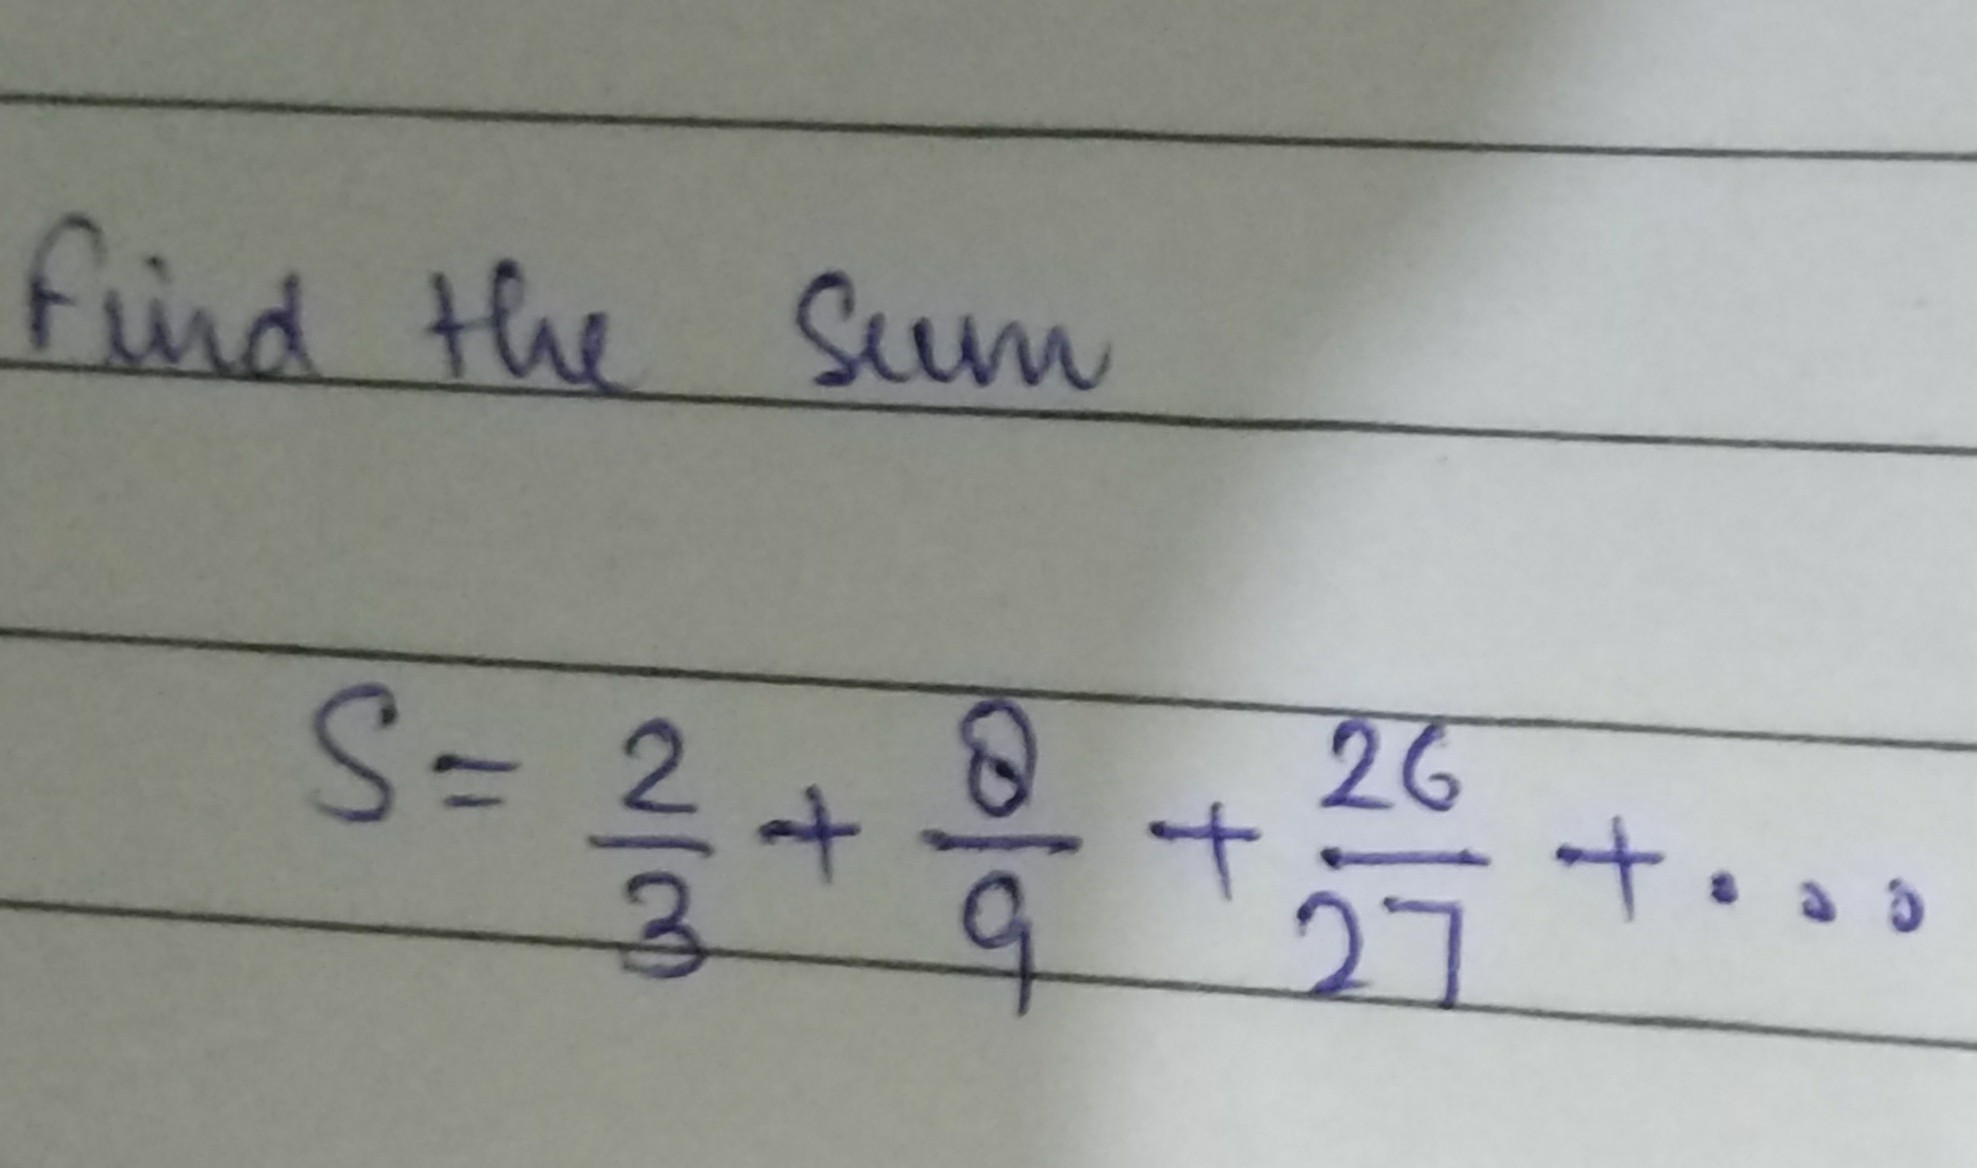 Find the Sum
S = 2/3 + 8/9 + 26/27 + ...